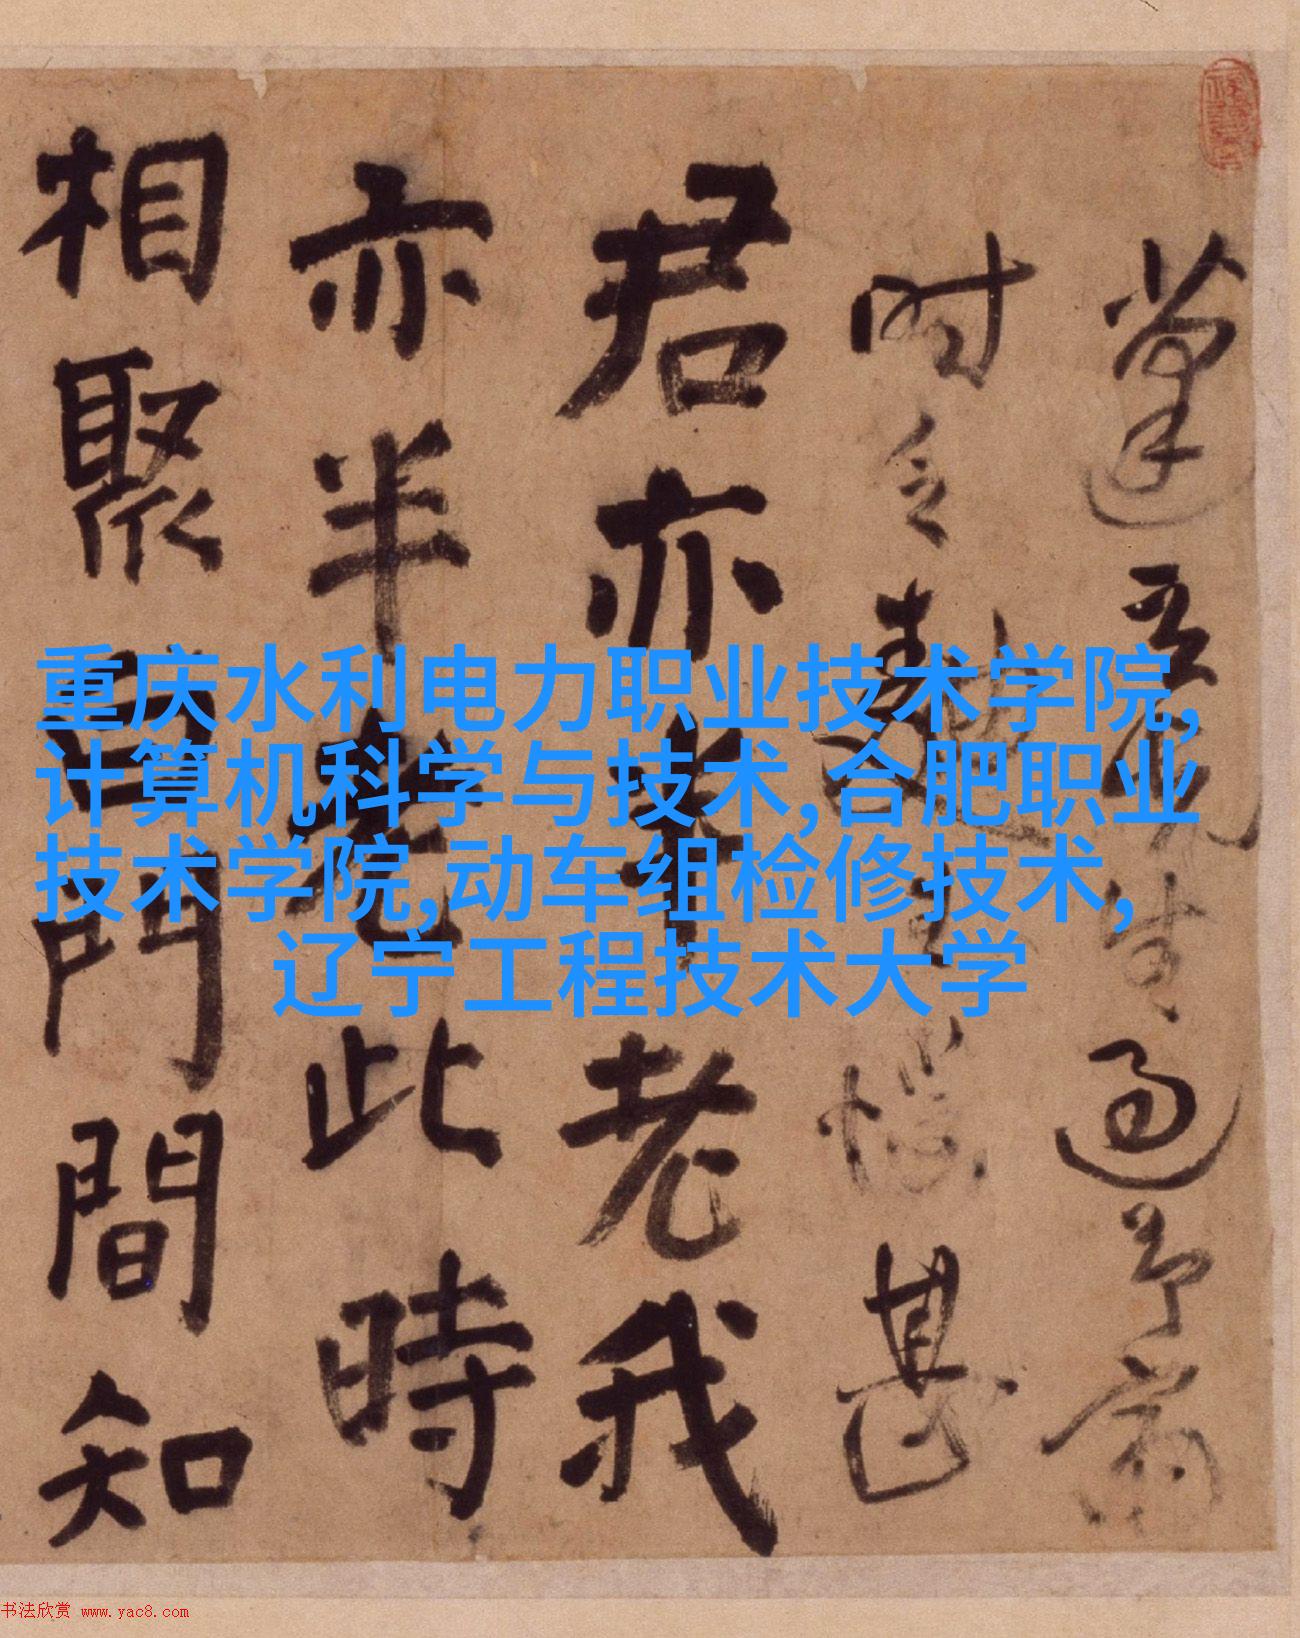 生過予齋
時甚
君亦老我
亦半老此時
相聚門間知
重庆水利电力职业技术学院,
计算机科学与技术,合肥职业
技术学院,动车组检修技术,
辽宁工程技术大学
书法欣赏 www.yac8.com